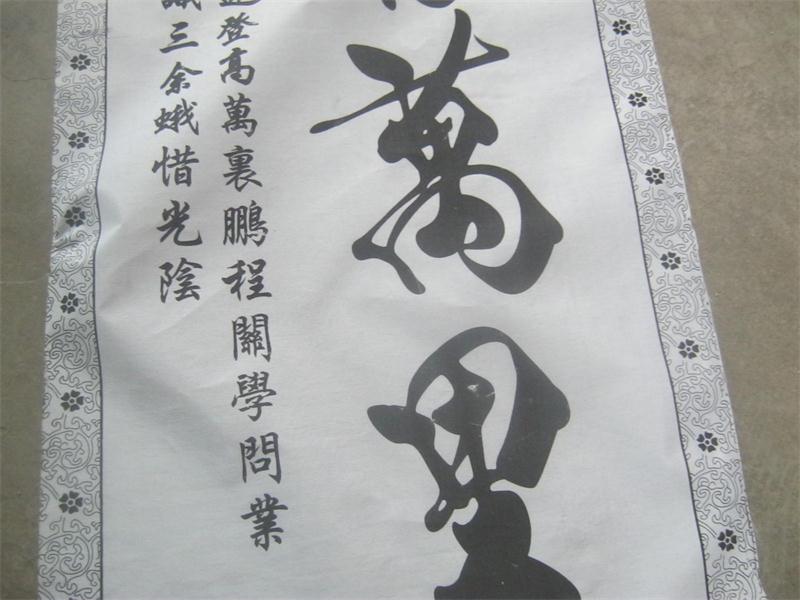 萬里
登高萬裏鵬程關學問業
三余蛾惜光陰